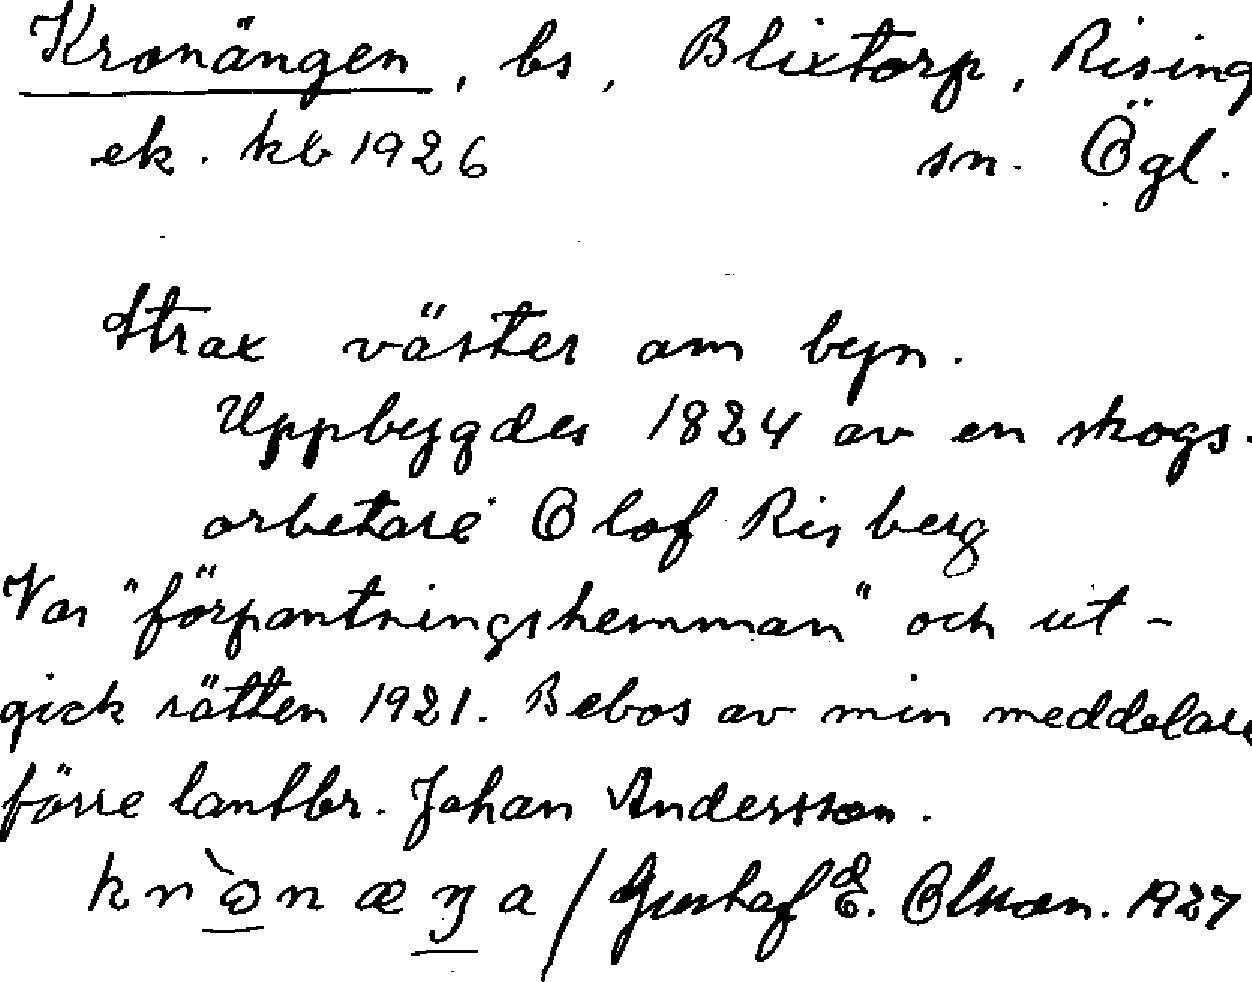 Kronängen, bs, Blixtorp, Rising
ek. kb 1926 sn. Ögl.
Strax väster om byn.
Uppbyggdes 1824 av en skogs-
arbetare Olof Risberg
Var "förpantningshemman" och ut-
gick rätten 1921. Bebos av min meddelare
förre lantbr. Johan Andersson.
/ Gustaf E. Olson. 1927